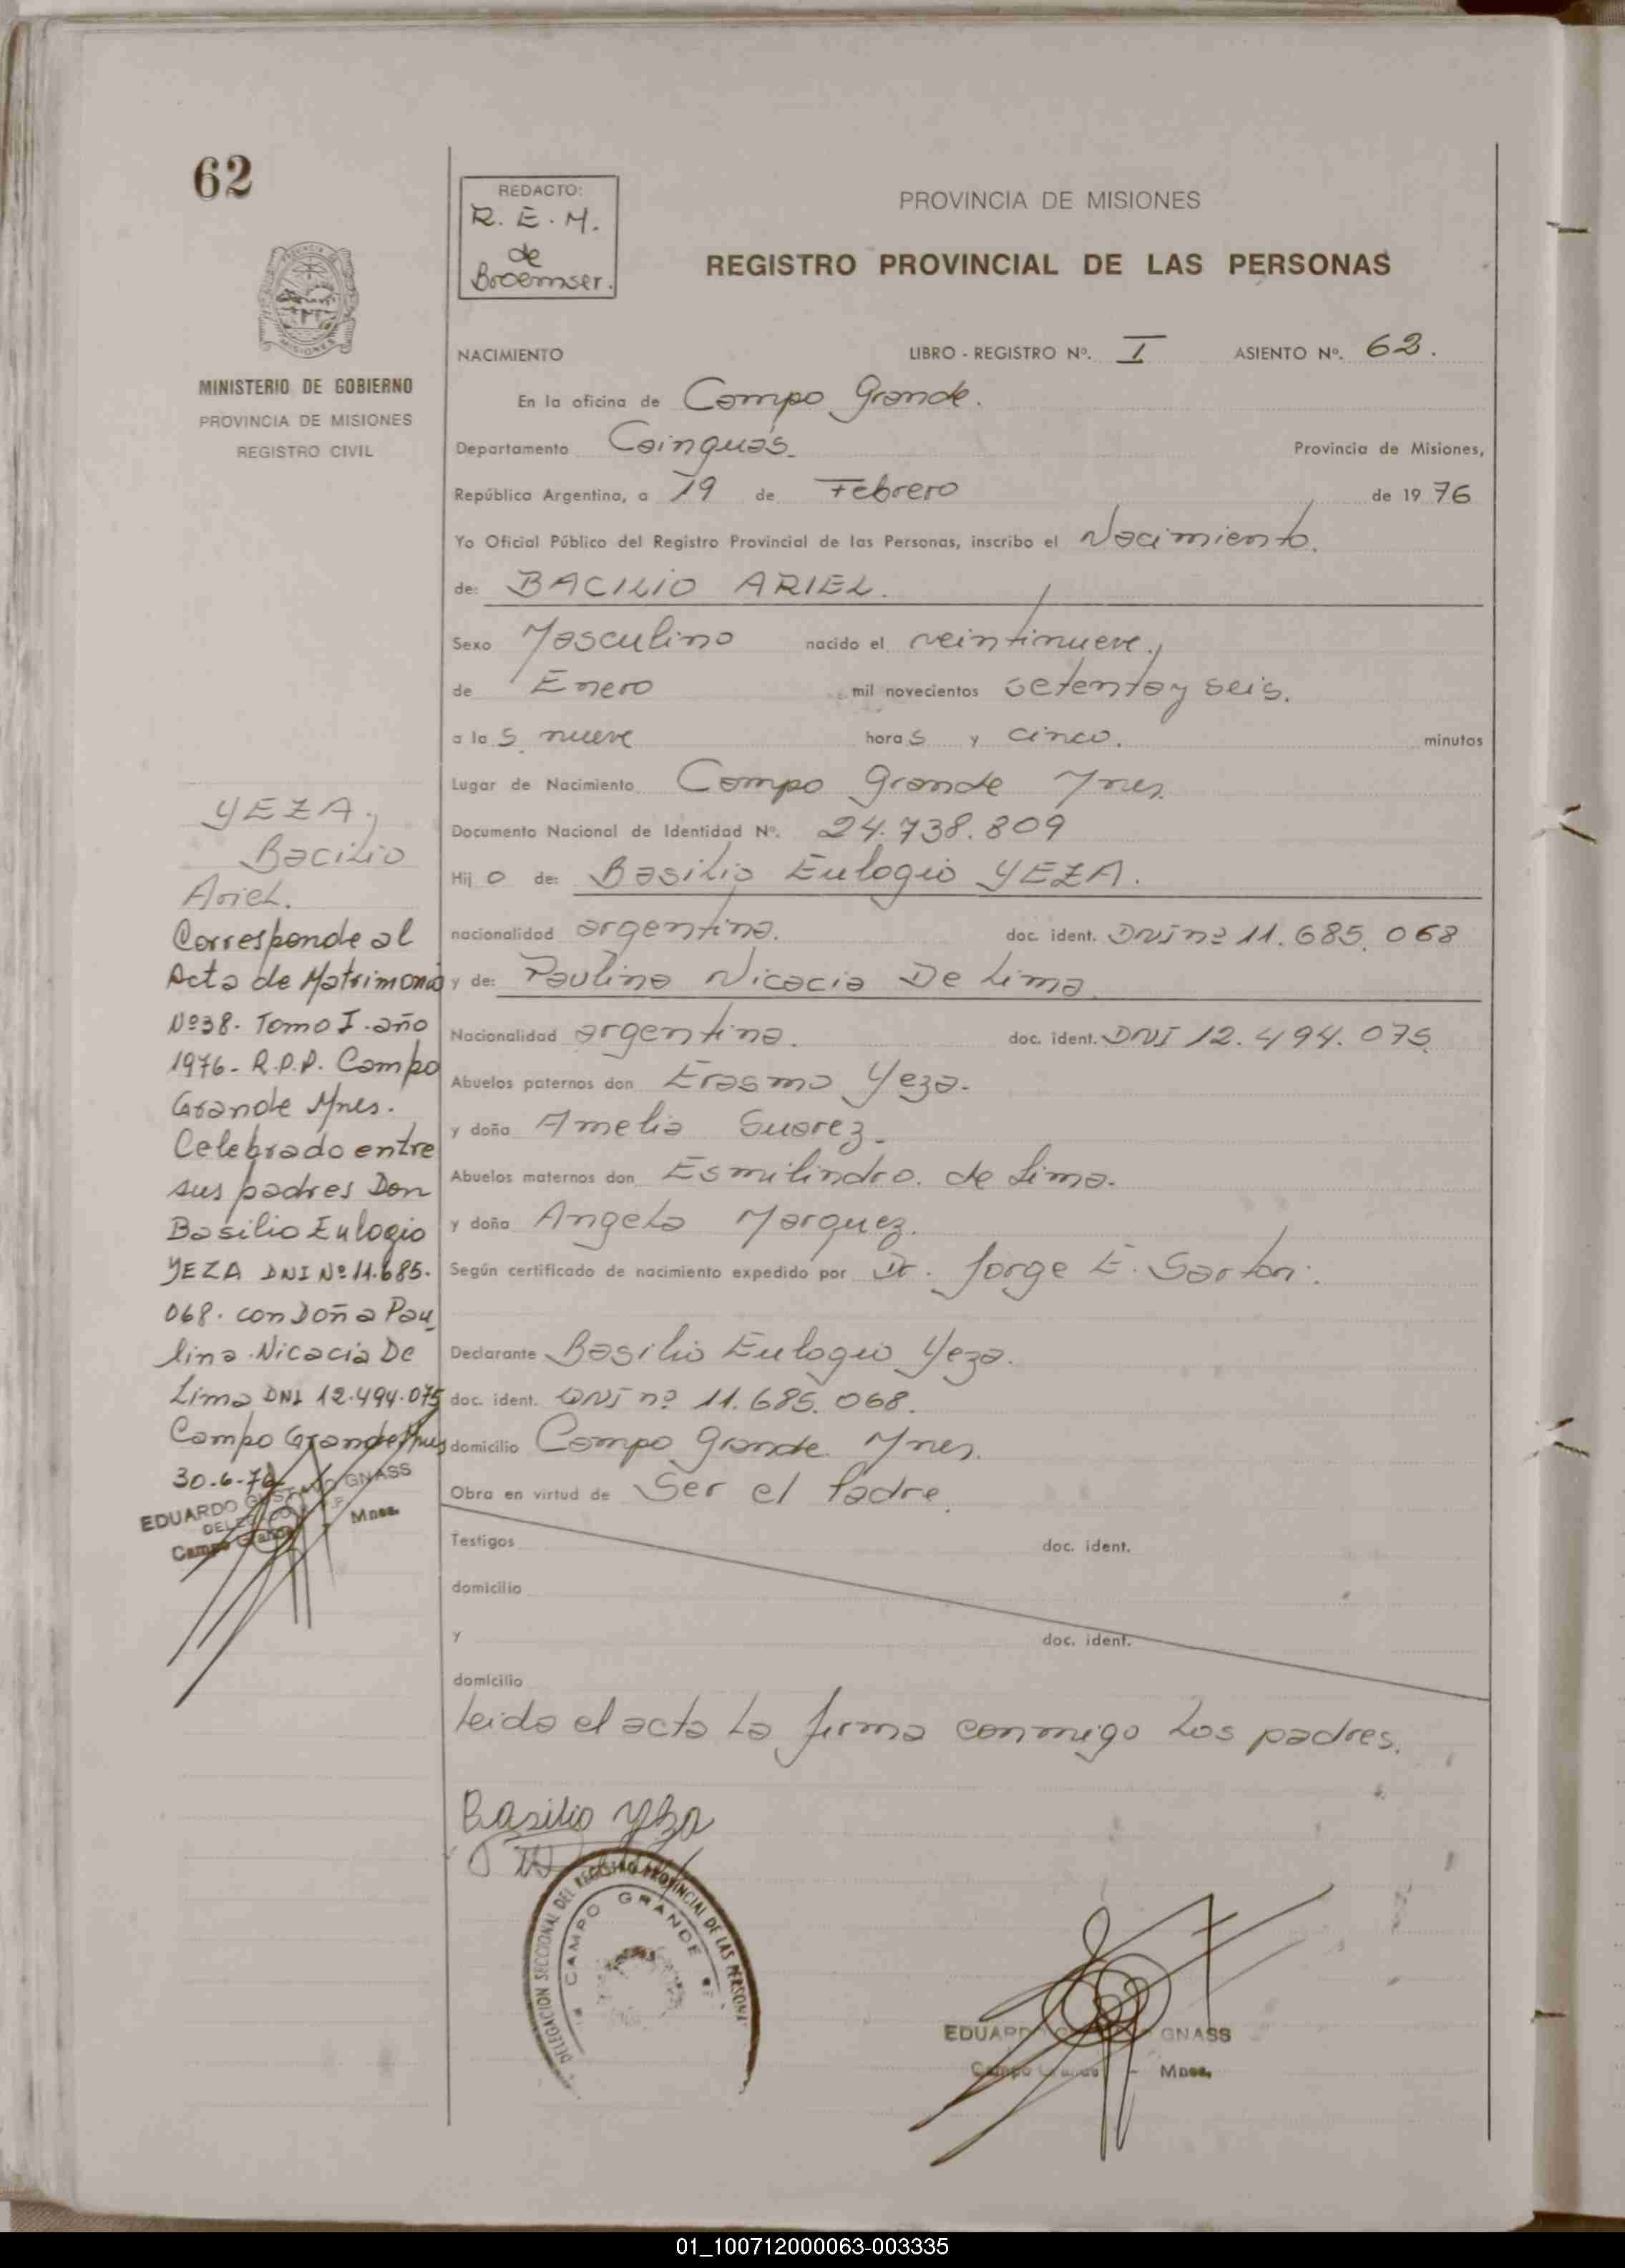 62
REDACTO:
R. E. M.
de
Broemser.
PROVINCIA DE MISIONES
REGISTRO PROVINCIAL DE LAS PERSONAS
MINISTERIO DE GOBIERNO
PROVINCIA DE MISIONES
REGISTRO CIVIL
NACIMIENTO LIBRO - REGISTRO Nº. I ASIENTO Nº. 62.
En la oficina de Campo Grande.
Departamento Cainguás. Provincia de Misiones,
República Argentina, a 19 de Febrero de 19 76
Yo Oficial Público del Registro Provincial de las Personas, inscribo el Nacimiento.
de: BACILIO ARIEL.
Sexo Masculino nacido el veintinueve,
de Enero mil novecientos setenta y seis.
a la s nueve hora s y cinco. minutos
Lugar de Nacimiento Campo Grande Mnes.
Documento Nacional de Identidad Nº. 24.738.809
Hij o de: Basilio Eulogio YEZA.
nacionalidad argentina. doc. ident. DNI nº 11.685.068
y de: Paulina Nicacia De Lima
Nacionalidad argentina. doc. ident. DNI 12.494.075.
Abuelos paternos don Erasmo Yeza.
y doña Amelia Suarez.
Abuelos maternos don Esmilindro. de Lima.
y doña Angela Marquez.
Según certificado de nacimiento expedido por Dr. Jorge E. Sartori.
Declarante Basilio Eulogio Yeza.
doc. ident. DNI nº 11.685.068.
domicilio Campo Grande Mnes.
Obra en virtud de Ser el Padre.
Testigos doc. ident.
domicilio
y doc. ident.
domicilio
Leida el acta la firma conmigo los padres.
YEZA,
Bacilio
Ariel.
Corresponde al
Acta de Matrimonio
Nº38. Tomo I. año
1976- R.P.P. Campo
Grande Mnes.
Celebrado entre
sus padres Don
Basilio Eulogio
YEZA DNI Nº 11.685.
068. con Doña Pau
lina Nicacia De
Lima DNI 12.494.075
Campo Grande Mnes
30-6-76
EDUARDO GUSTAVO GNASS
Campo Grande - Mnes.
Basilio Yeza
DELEGACION SECCIONAL DEL REGISTRO PROVINCIAL DE LAS PERSONA
CAMPO GRANDE
EDUARDO GNASS
Campo Grande - Mnes.
01_100712000063-003335